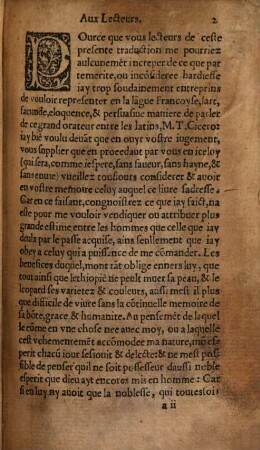 Aux Lecteurs. 2
Pource que vous lecteurs de ceste
presente traduction me pourriez
aulcunemẽt increper de ce que par
temerite, ou incõsideree hardiesse
iay trop soudainement entreprins
de vouloir representer en la lãgue Francoyse, lart,
facunde, eloquence, & persuasiue maniere de parler
de ce grand orateur entre les latins, M. T. Cicero:
iay biẽ voulu deuãt que en ouyr vostre iugement,
vous supplier que en procedant par vous en iceluy
(qui sera, comme iespere, sans faueur, sans hayne, &
sans enuie) vueillez tousiours considerer & auoir
en vostre memoire celuy auquel ce liure sadresse.
Car en ce faisant, congnoistrez que ce que iay faict, na
elle pour me vouloir vendiquer ou attribuer plus
grande estime entre les hommes que celle que iay
deula par le passe acquise, ains seullement que iay
obey a celuy qui a puissance de me cõmander. Les
benefices duquel, mont tãt oblige enuers luy, que
tout ainsi que lethiopiẽ ne peult muer sa peau, & le
leopard ses varietez & couleurs, aussi mest il plus
que difficile de viure sans la cõtinuelle memoire de
sa bõte, grace & humanite. Au pensemẽt de laquel
le cõme en vne chose nee auec moy, ou a laquelle
cest vehementemẽt accõmodee ma nature, mõ es-
perit chacũ iour sesiouit & delecte: & ne mest pos
sible de penser qui ne soit possesseur daussi noble
esperit que dieu ayt encores mis en homme: Car
si en luy ny auoit que la noblesse, qui toutesfois
a ii